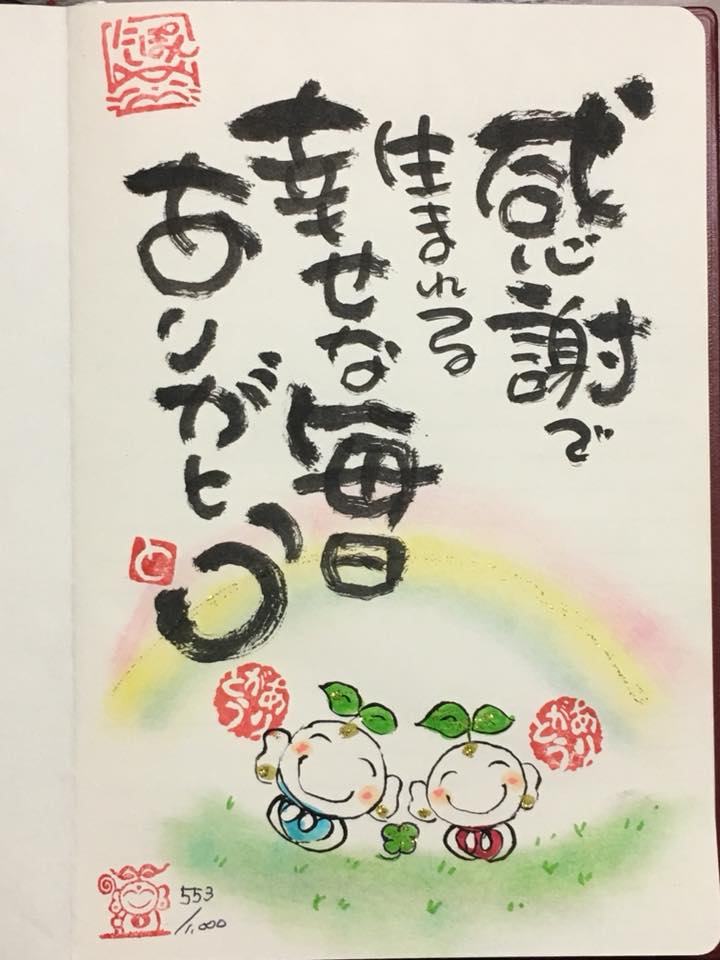 感謝で
生まれる
幸せな毎日
ありがとう
にっぽん
と
ありがとう
ありがとう
553
/1,000